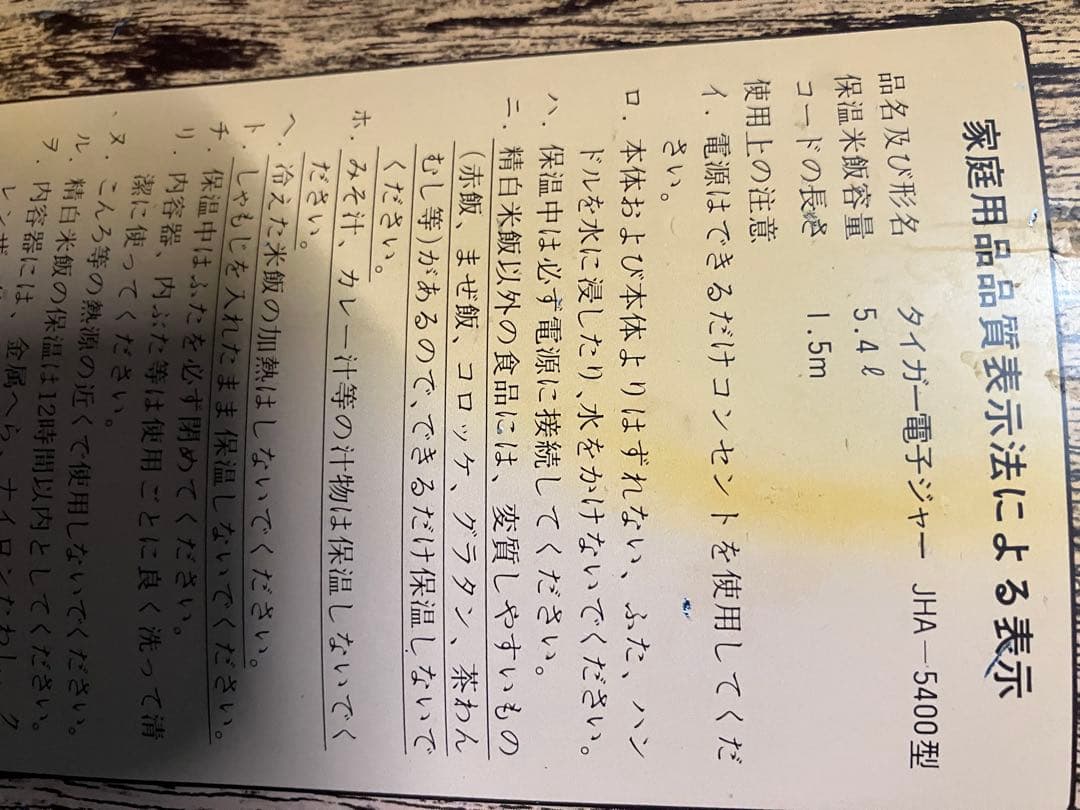 家庭用品品質表示法による表示
品名及び形名 タイガー電子ジャー JHA－5400型
保温米飯容量 5.4ℓ
コードの長さ 1.5m
使用上の注意
イ. 電源はできるだけコンセントを使用してくだ
さい。
ロ. 本体および本体よりはずれない、ふた、ハン
ドルを水に浸したり、水をかけないでください。
ハ. 保温中は必ず電源に接続してください。
ニ. 精白米飯以外の食品には、変質しやすいもの
(赤飯、まぜ飯、コロッケ、グラタン、茶わん
むし等)があるので、できるだけ保温しないで
ください。
ホ. みそ汁、カレー汁等の汁物は保温しないでく
ださい。
ヘ. 冷えた米飯の加熱はしないでください。
ト. しゃもじを入れたまま保温しないでください。
チ. 保温中はふたを必ず閉めてください。
リ. 内容器、内ぶた等は使用ごとに良く洗って清
潔に使ってください。
ヌ. こんろ等の熱源の近くで使用しないでください。
ル. 精白米飯の保温は12時間以内としてください。
ヲ. 内容器には、金属へら、ナイロンたわし、ク
レンザー